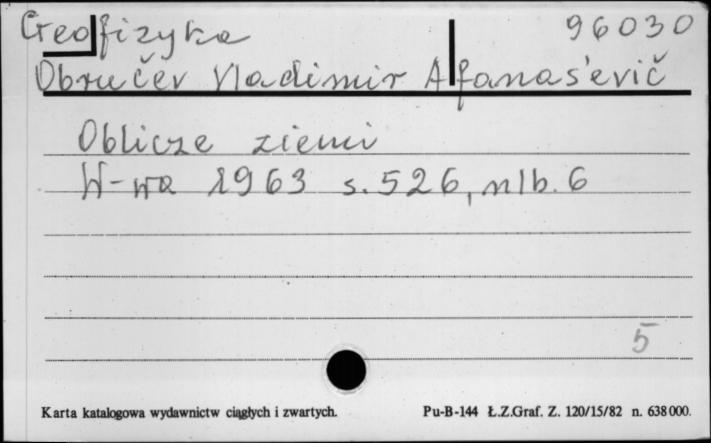 Geofizyka 96030
Obručev Vladimir Afanas'evič
Oblicze ziemi
W-wa 1963 s. 526, nlb. 6
5
Karta katalogowa wydawnictw ciągłych i zwartych. Pu-B-144 Ł.Z.Graf. Z. 120/15/82 n. 638000.